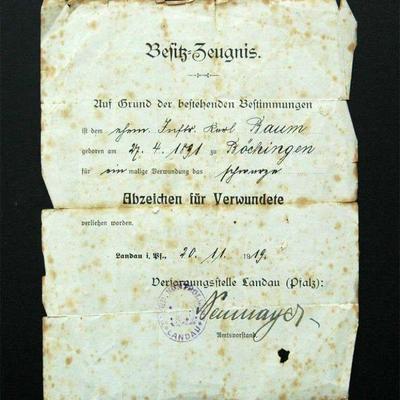 Besitz-Zeugnis.
Auf Grund der bestehenden Bestimmungen
ist dem ehem. Inftr. Karl Baum
geboren am 27.4.1891 zu Böchingen
für ein malige Verwundung das schwarze
Abzeichen für Verwundete
verliehen worden.
Landau i. Pf., 20. 11. 1919.
Versorgungsstelle Landau (Pfalz):
Neumayer
Amtsvorstand.
LANDAU